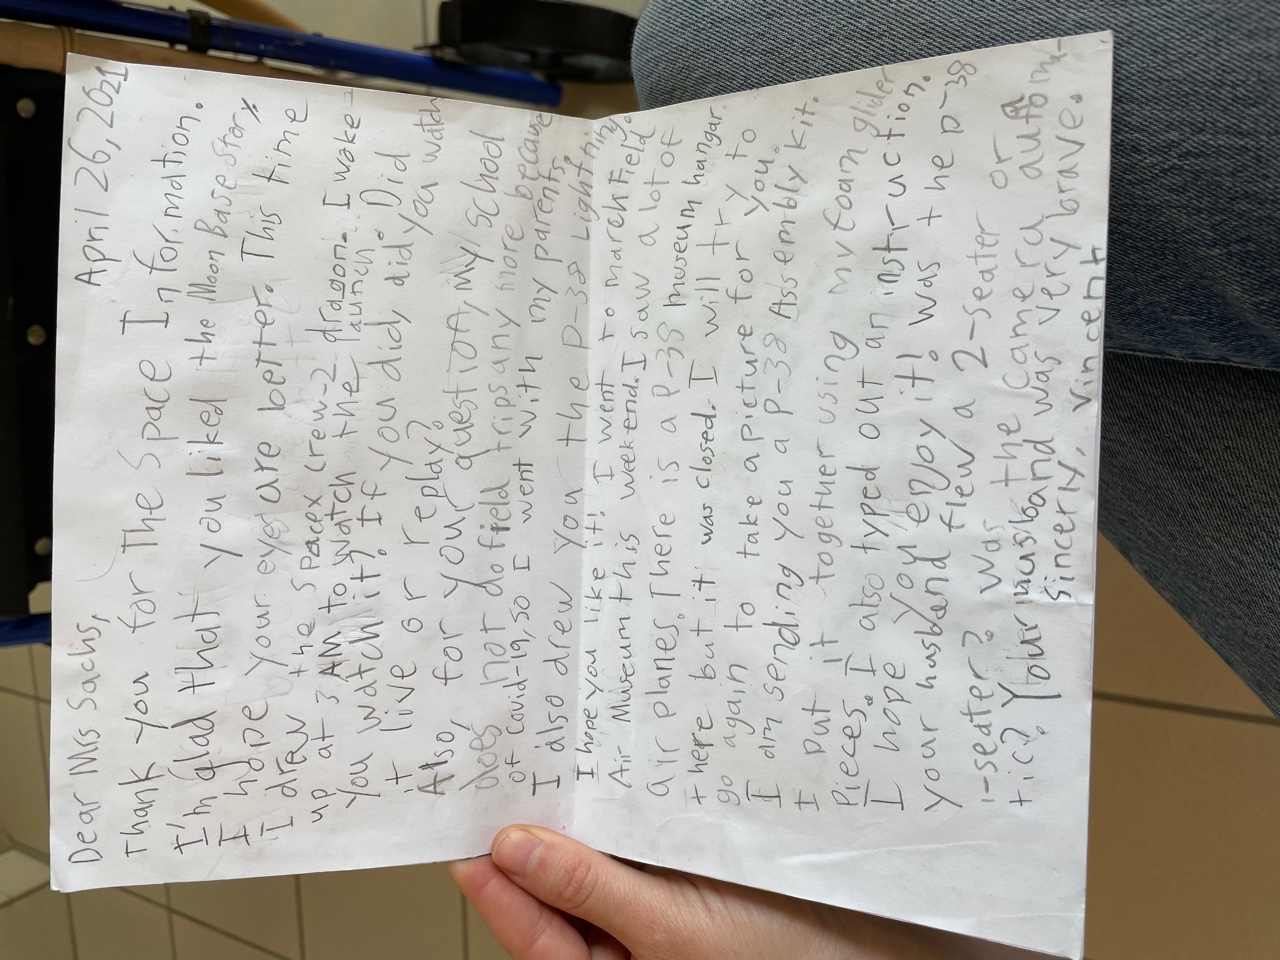 April 26, 2021
Dear Mrs Sachs,
Thank you for the Space Information.
I'm glad that you liked the Moon Base Story.
I hope your eyes are better. This time
I drew the Spacex crew-2 dragon. I woke
up at 3 AM to watch the launch. Did
you watch it? If you did, did you watch
it live or replay?
Also, for your question, My School
Does not do field trips any more because
of Covid-19, so I went with my parents.
I also drew you the P-38 Lightning.
I hope you like it! I went to march Field
Air Museum this weekend. I saw a lot of
air planes. There is a P-38 museum hangar
there but it was closed. I will try to
go again to take a picture for you.
I am sending you a P-38 Assembly kit.
I put it together using my foam glider
Pieces. I also typed out an instruction.
I hope you enjoy it! was the P-38
your husband flew a 2-seater or
1-seater? Was the camera automa-
tic? Your husband was very brave.
Sincerly, Vincent